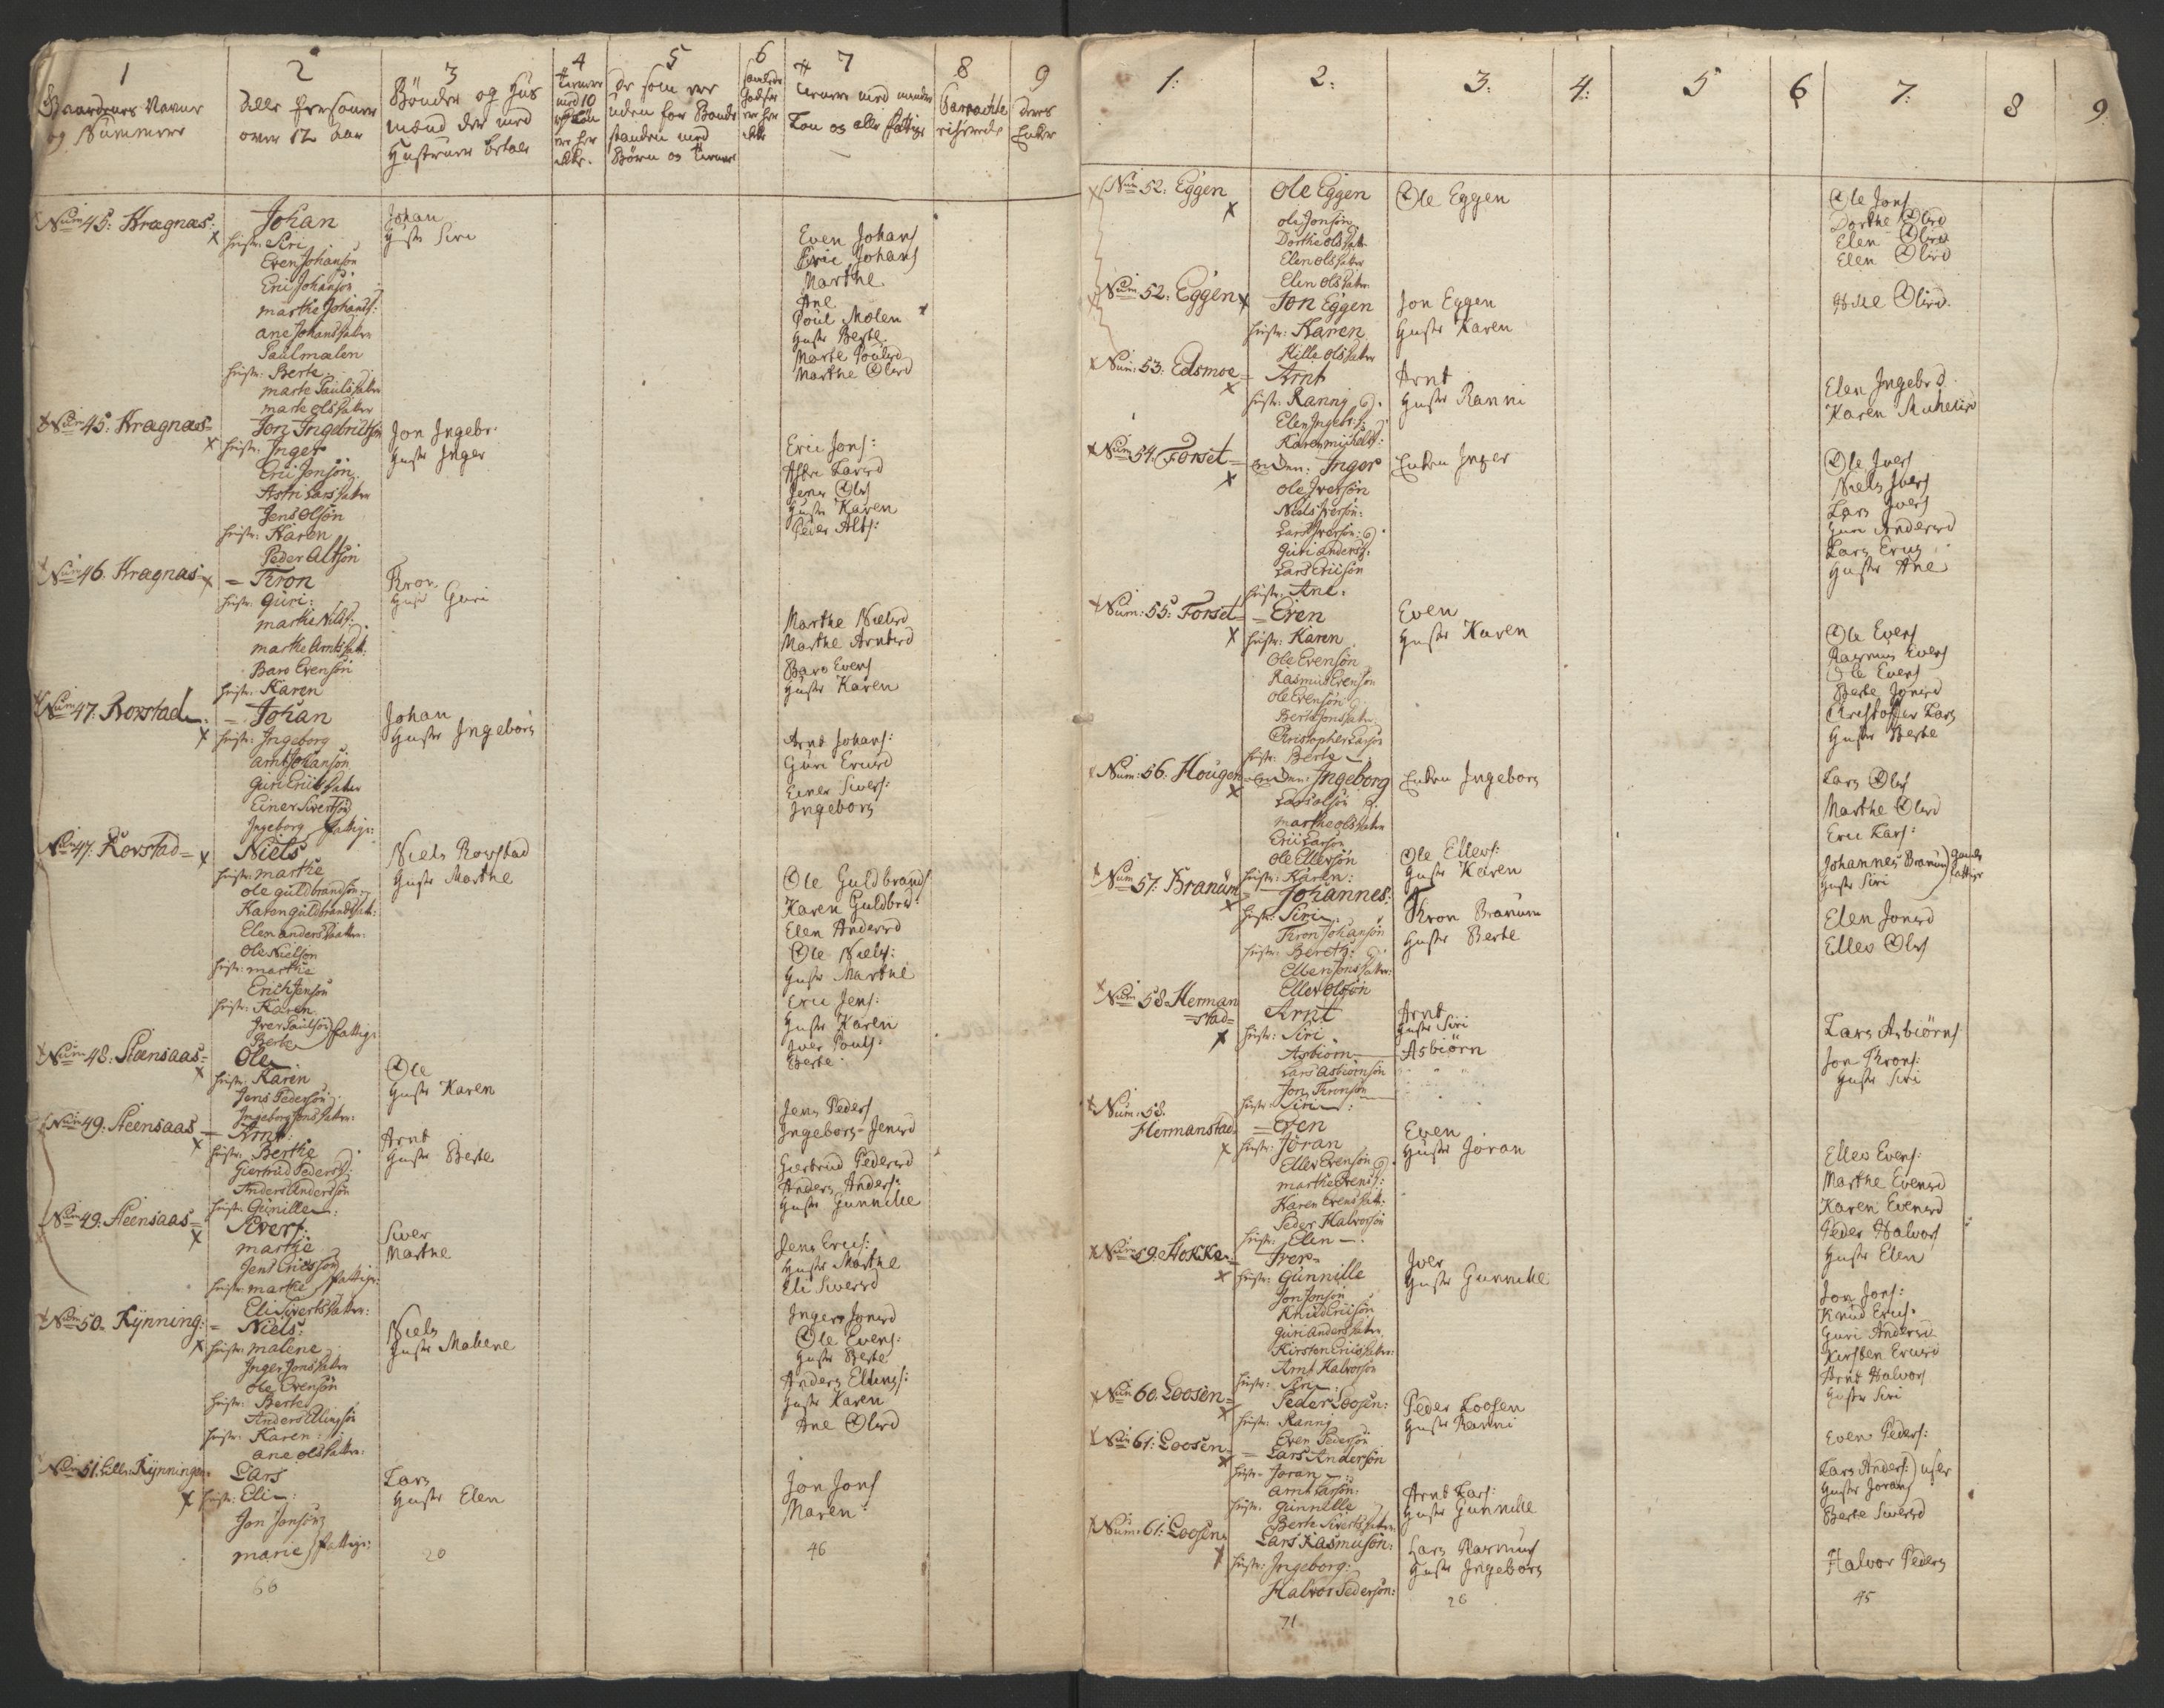 1
2
3
4
5
6
7
8
9
Gaardenes Navne
og Nummere
Alle Personer
over 12 aar
Bønder og Huus
mænd der med
Hustruer betale
med 10
er her
ikke.
De som ere
uden for Bonde
standen med
Børn og
er her
ikke
med mindre
Løn og alle fattige
Deres
Enker
Num 45: Kragnæs:
Johan
hustr: Siri
Even Johanson
Eric Johanson
marthe Johansd:
ane Johansdatter
Paul mælen
hustr: Berte
marte Paulsdatter
marte olsdatter
Johan
Hustr Siri
Even Johans
Eric Johans
Marthe
Ane
Poul Mölen
Hustr Berte
Marte Poulsd
Marthe Olsd
Num 45: Kragnæs
Jon Ingebrictson
hustr: Inger
Eric Jonsøn
Astri Larsdatter
Jens Olsøn
hustr: Karen
Peder Altsøn
Jon Ingebr:
Hustr Inger
Eric Jons:
Astri Larsd
Jens Ols
Hustr Karen
Peder Alts:
Num 46. Kragnæs
= Tron
hustr: Guri:
marthe Nilsd:
marthe Arntsdatt:
Baro Evensøn
hustr: Karen
Tron
Hustr Guri
Marthe Nielsd
Marthe Arntsd
Baro Evens
Hustr Karen
Num 47: Rovstad
= Johan
hustr: Ingeborg
arnt Johanson
Guri Ericksdatter
Einer Sivertsøn
Ingeborg fattige:
Johan
Hustr Ingeborg
Arnt Johans:
Guri Ericsd
Einer Sivers:
Ingeborg
Num 47: Rovstad=
Niels
hustr: marthe
ole guldbrandsøn:
Karen guldbrandsdatt:
Elen andersdaatter:
Ole Nielson
hustr: marthe
Erick Jensøn
hustr: Karen
Iver Paulsøn
Berte fattige
Niels Rovstad
Hustr Marthe
Ole Guldbrands
Karen Guldbrd:
Elen Andersd
Ole Niels:
Hustr Marthe
Eric Jens:
Hustr Karen
Iver Pouls:
Berte.
Num 48: Steensaas=
Ole
hustr: Karen
Jens Pedersøn
Ingeborg Jonsdatter:
Ole
Hustr Karen
Jens Peders
Ingeborg Jensd
Num 49. Steensaas
= Arnt:
hustr: Berthe
Giertrud Pedersd:
Anders Andersøn
hustr: Gunille
Arnt
Hustr Berte
Giertrud Pedersd
Anders Anders:
Hustr Gunnille
Num 49: Steensaas=
Sivert:
marthe
Jens Ericsøn
hustr: marthe fattige:
Eli Sivertsdatter:
Siver
Marthe
Jens Erics:
Hustr Marthe
Eli Siversd
Num 50. Kynning:
= Niels:
hustr: malene
Inger Jonsdatter
Ole Evensøn
hustr: Berte
Anders Ellingsøn
hustr: Karen:
ane olsdatter:
Niels
Hustr Malene
Inger Jonsd
Ole Evens:
Hustr Berte
Anders Ellings:
Hustr Karen
Ane Olsd
Num 51: Lille Kynningen
Lars
hustr: Eli:
Jon Jonsøn
marie fattige:
Lars
Hustr Elen
Jon Jons
Maren
66
20
46
1:
2:
3:
4:
5
6
7:
8
9
Num 52: Eggen
Ole Eggen
ole Jonsøn
Dorthe olsdatter
Elen olsdatter
Elen olsdatter
Ole Eggen
Ole Jons
Dorthe Olsd
Elen Olsd
Elen Olsd
Num 52: Eggen
Jon Eggen
hustr: Karen
Kille olsdatter
Jon Eggen
Hustr Karen
Olsd.
Num: 53: Edsmoe
= Arnt
hustr: Ranni
Elen Ingebrd:
Karen mickelsd:
Arnt
Hustr Ranni
Elen Ingebrd
Karen Mickelsd
Num 54. Forset=
enken: Inger
Ole Iversøn
Niels Iversøn:
Lars Iversøn:
Guri andersd:
Lars Ericsøn
hustr: Ane.
Enken Inger
Ole Ivers
Niels Ivers
Lars Ivers
Guri Andersd
Lars Erics
Hustr Ane
Num: 55: Forset
= Even
hustr: Karen
Ole Evensøn
Rasmus Evensøn
ole Evensøn
Berte Jonsdatter
Christopher Larsøn
hustr: Berte
Even
Hustr Karen
Ole Evens
Rasmus Evens
Ole Evens
Berte Jonsd
Christoffer Lars
Hustr Berte
Num: 56. Hougen
enken: Ingeborg
Lars olsøn
marthe olsdatter
Eric Larsøn
Ole Ellefsøn
hustr: Karen:
Enken Ingeborg
Ole Ellevs:
Hustr Karen
Lars Ols
Marthe Olsd
Eric Lars:
Num 57: Branum
Johannes:
hustr: Siri
Tron Johansøn
hustr: Bereth:
Ellen Jonsdatter:
Ellev Olsøn
Tron Branum
Hustr Berte
Johannes Branum
Hustr Siri
gamle
fattige
Elen Jonsd
Ellev Ols
Num 58 Herman
=stad=
Arnt
hustr: Siri.
Asbiorn
Lars Asbiornsøn
Jon Tronsøn
hustr: Siri:
Arnt
Hustr Siri
Asbiørn
Lars Asbiørns
Jon Trons:
Hustr Siri
Num: 58.
Hermanstad
= Even
hustr: Joran
Ellev Evensøn
marthe Evensd:
Karen Evensdatt:
Peder Halvorsøn
hustr: Elen —.
Even
Hustr Joran
Ellev Evens:
Marthe Evensd
Karen Evensd
Peder Halvors
Hustr Elen
Num 59. Stokke
Iver
hustr: Gunnille
Jon Jonsøn
Knud Ericsøn
Guri andersdatter
Kirsten Ericsdatter:
Arnt Halvorsøn
hustr: Siri
Iver
Hustr Gunnille
Jon Jons:
Knud Erics.
Guri Andersd
Kirsten Ericsd
Arnt Halvors
Hustr Siri
Num 60. Loosen=
Peder Loosen:
hustr: Ranni
Even Pedersøn
Peder Loosen
Hustr Ranni
Even Peders:
Num 61: Loosen
= Lars Andersøn
hustr: Joran —:
arnt Larsøn:
hustr: Gunnelle
Berte Sivertsdatter
Arnt Lars:
Hustr Gunnille
Lars Anders:
Hustr Joran
Berte Siversd
Num: 61: Loosen
Lars Rasmusøn:
hustr: Ingeborg:
Halvor Pedersøn:
Lars Rasmus
Hustr Ingeborg
Halvor Peders
71
26
45